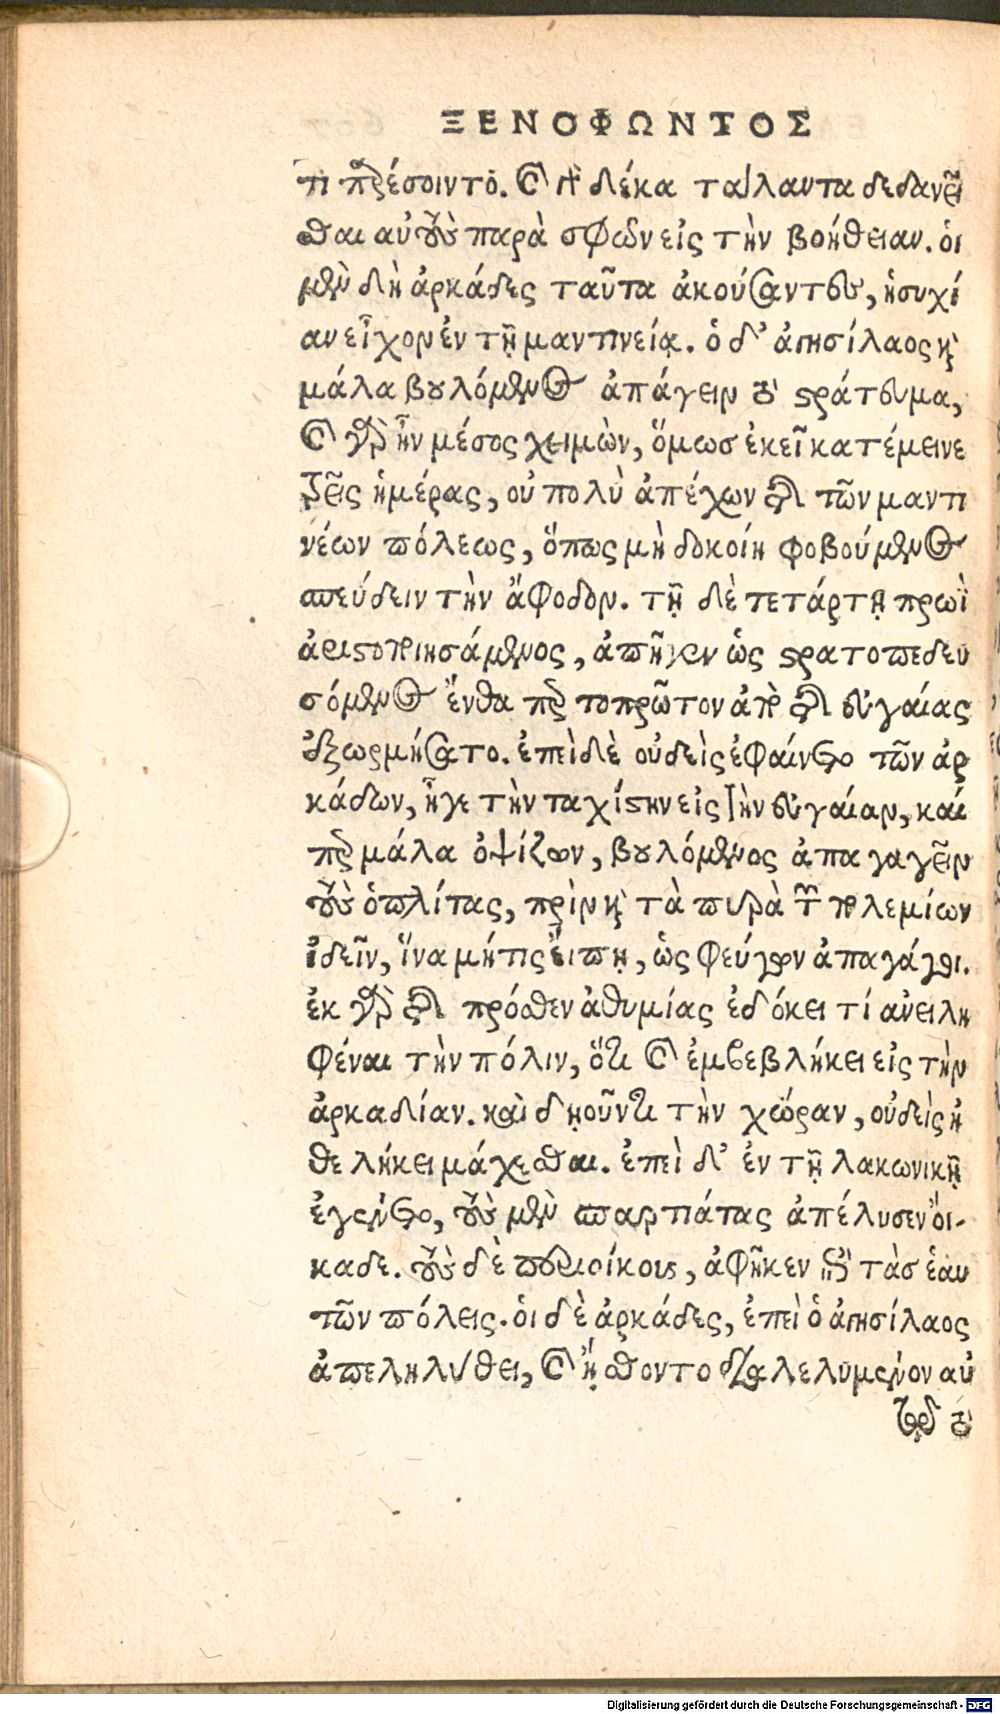 ΞΕΝΟΦΩΝΤΟΣ
τι παρέσοιντο. καὶ γὰρ δέκα τάλαντα δεδανεῖ
σθαι αὐτοὺς παρὰ σφῶν εἰς τὴν βοήθειαν. οἱ
μὲν δὴ ἀρκάδες ταῦτα ἀκούσαντες, ἡσυχί
αν εἶχον ἐν τῇ μαντινείᾳ. ὁ δ' ἀγησίλαος καὶ
μάλα βουλόμενος ἀπάγειν τὸ στράτευμα,
καὶ γὰρ ἦν μέσος χειμὼν, ὅμωσ ἐκεῖ κατέμεινε
τρεῖς ἡμέρας, οὐ πολὺ ἀπέχων τῆς τῶν μαντι
νέων πόλεως, ὅπως μὴ δοκοίη φοβούμενος
σπεύδειν τὴν ἄφοδον. τῇ δὲ τετάρτῃ πρωῒ
ἀριστοποιησάμενος, ἀπῆγεν ὡς στρατοπεδευ
σόμενος ἔνθα περ τοπρῶτον ἀπὸ τῆς εὐγαίας
ἐξωρμήσατο. ἐπὶ δὲ οὐδεὶς ἐφαίνετο τῶν ἀρ
κάδων, ἦγε τὴν ταχίστην εἰς τὴν εὐγαίαν, καί
περ μάλα ὀψίζων, βουλόμενος ἀπαγαγεῖν
τοὺς ὁπλίτας, πρὶν καὶ τὰ πυρὰ τῶν πολεμίων
ἰδεῖν, ἵνα μήτις εἴπῃ, ὡς φεύγων ἀπαγάγοι.
ἐκ γὰρ τῆς πρόσθεν ἀθυμίας ἐδόκει τί ἀνειλη
φέναι τὴν πόλιν, ὅτι καὶ ἐμβεβλήκει εἰς τὴν
ἀρκαδίαν. καὶ δῃοῦντι τὴν χώραν, οὐδεὶς ἠ
θελήκει μάχεσθαι. ἐπεὶ δ' ἐν τῇ λακωνικῇ
ἐγένετο, τοὺς μὲν σπαρτιάτας ἀπέλυσεν οἴ-
καδε. τοὺς δὲ περιοίκους, ἀφῆκεν ἐπὶ τὰσ ἑαυ
τῶν πόλεις. οἱ δὲ ἀρκάδες, ἐπεὶ ὁ ἀγησίλαος
ἀπεληλύθει, καὶ ᾔσθοντο διαλελυμένον αὐ
τῷ τὸ
Digitalisierung gefördert durch die Deutsche Forschungsgemeinschaft - DFG